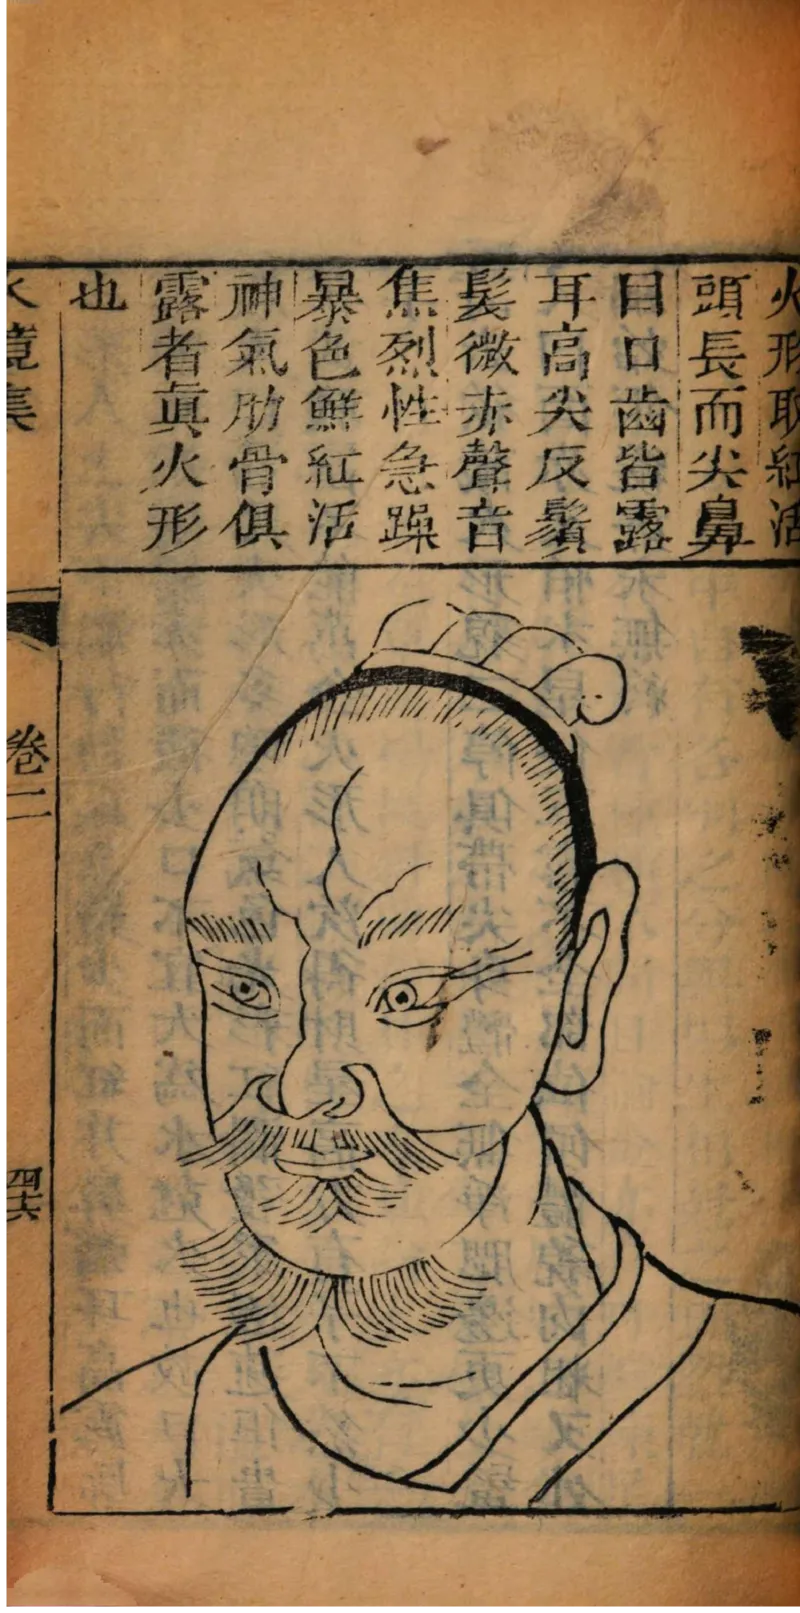 火形取紅活
頭長而尖鼻
目口齒皆露
耳高尖反鬚
髮微赤聲音
焦烈性急躁
暴色鮮紅活
神氣肋骨俱
露者眞火形
也
水鏡集
卷二
四六